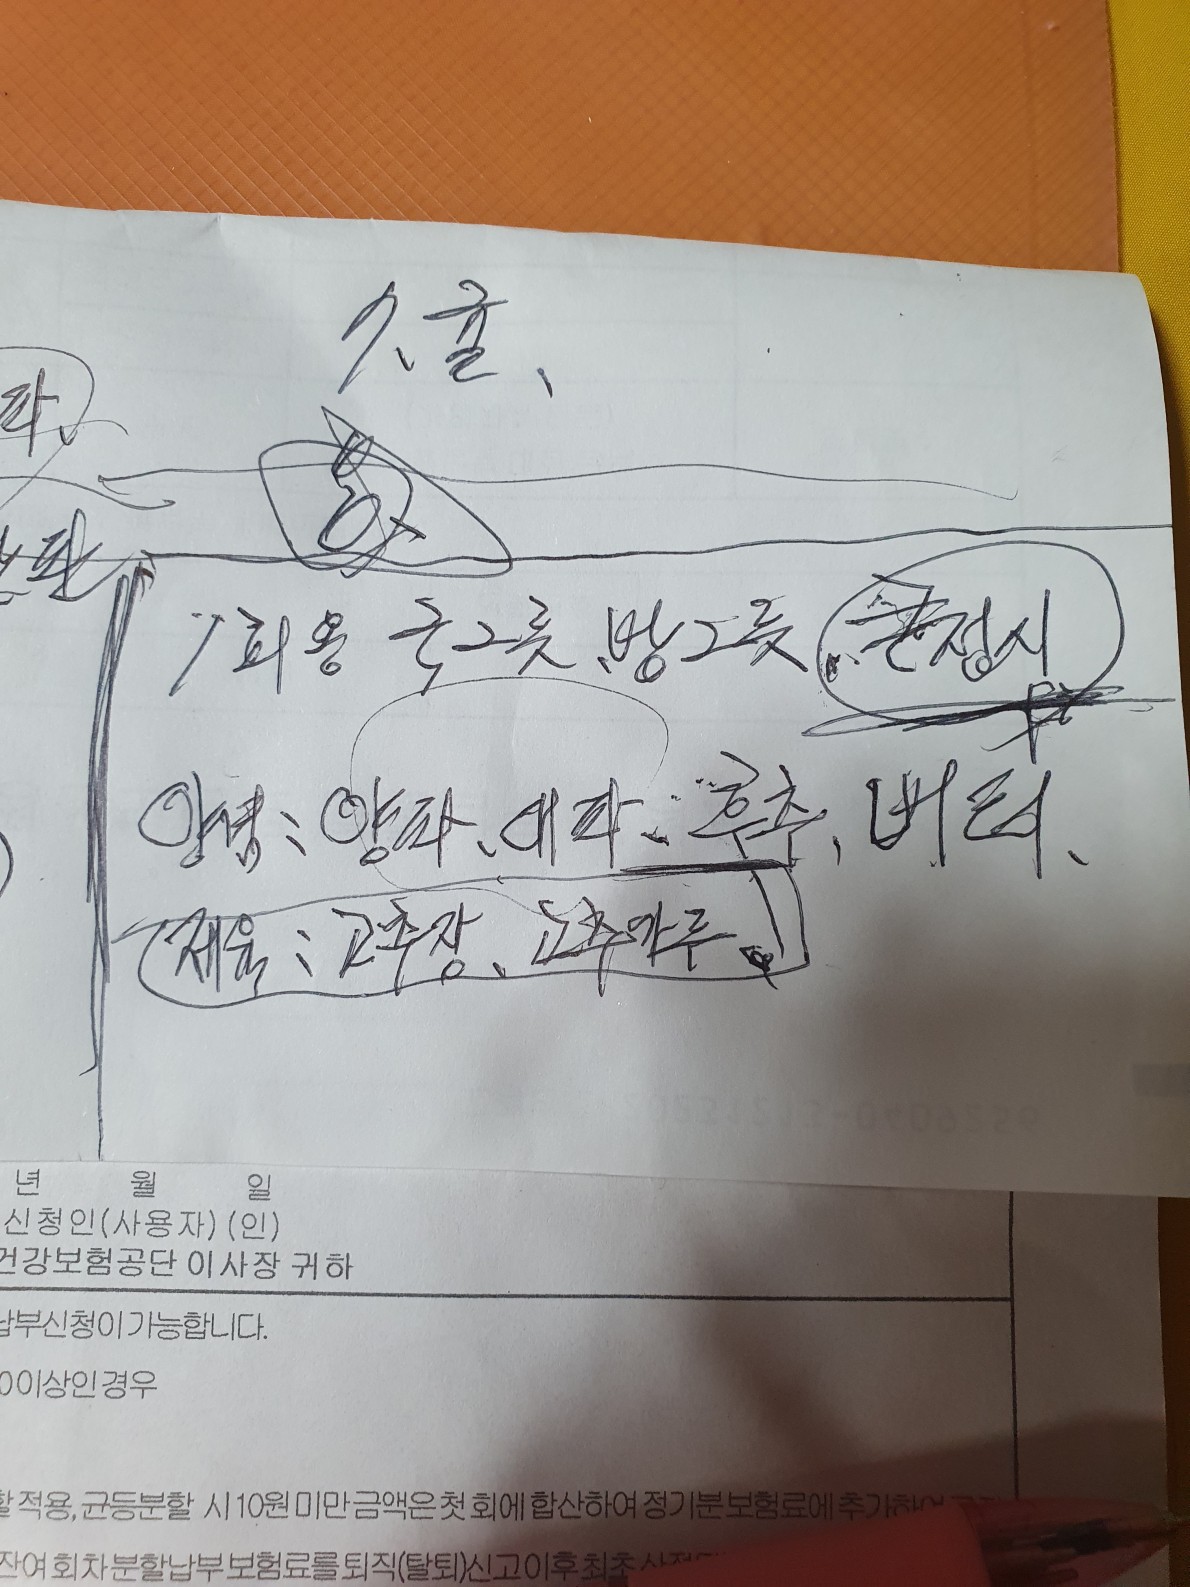 귤、
파、
1회용 국그릇、밥그릇、큰접시
양념: 양파、대파、후추、버터、
제육: 고추장、고추가루、
년 월 일
신청인(사용자) (인)
건강보험공단 이사장 귀하
납부신청이 가능합니다.
이상인 경우
적용, 균등분할 시 10원 미만 금액은 첫 회에 합산하여 정기분 보험료에 추가하여
잔여 회차 분할납부 보험료를 퇴직(탈퇴)신고 이후 최초